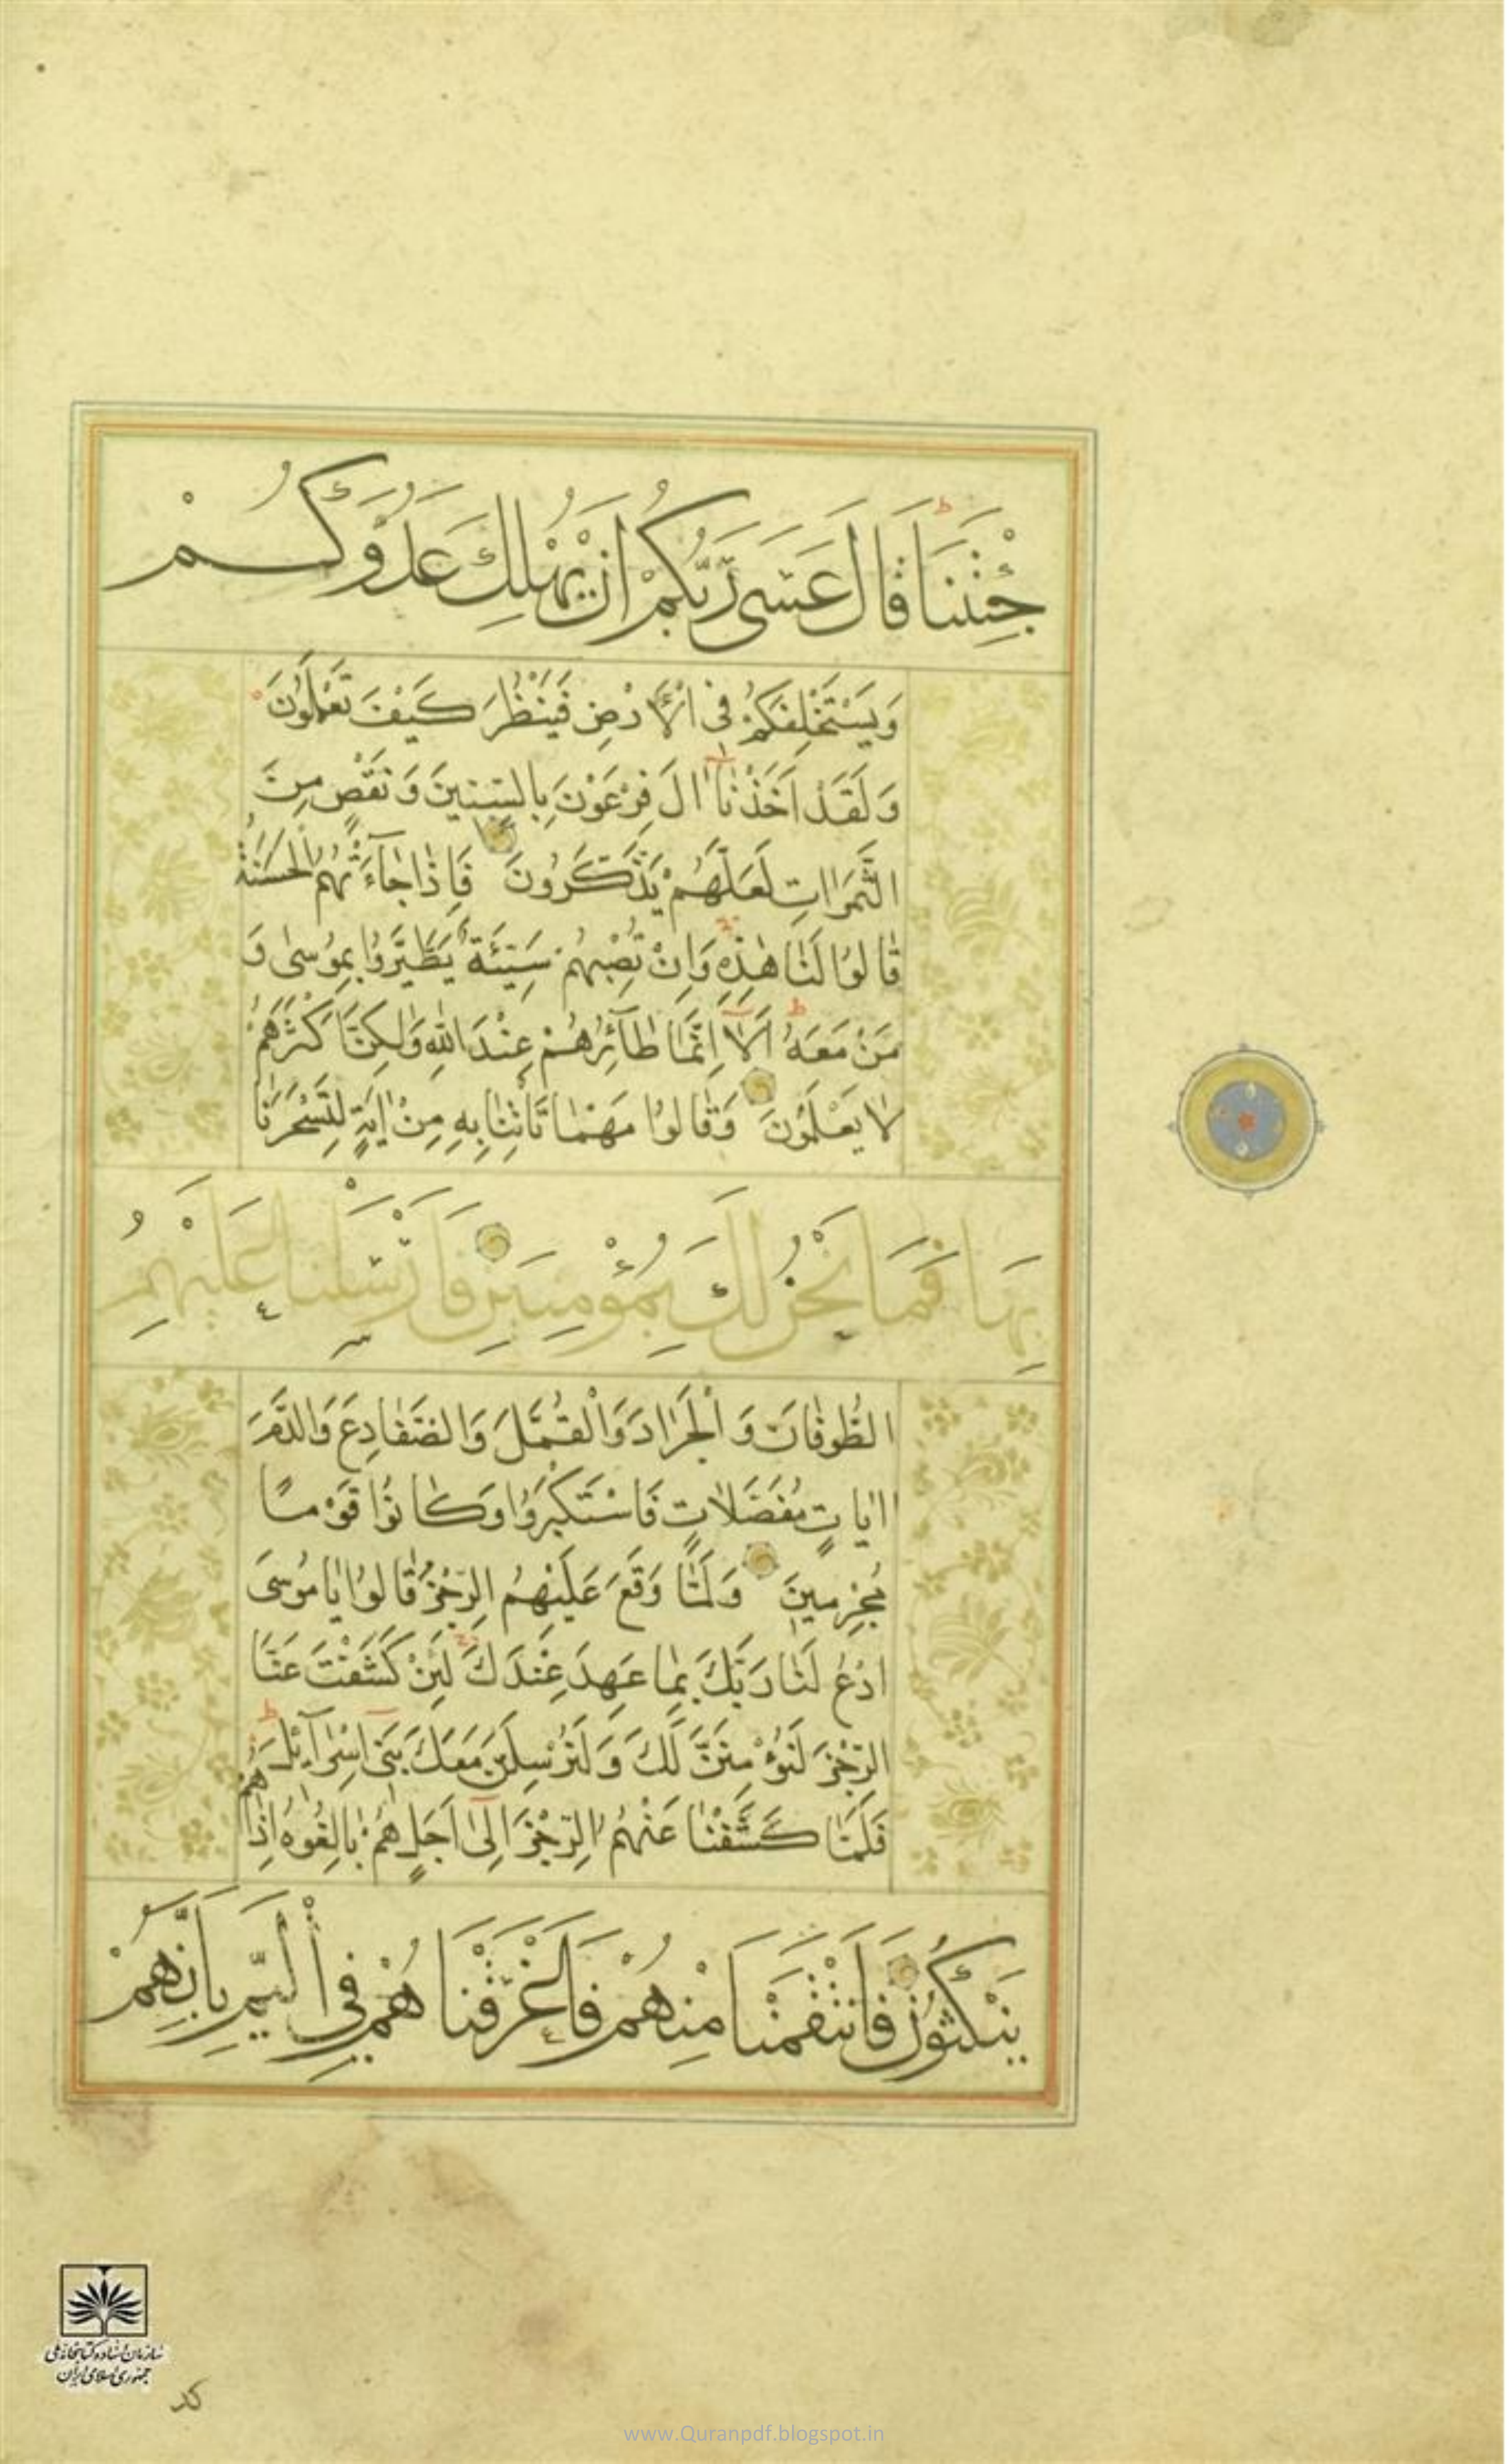 جِئْتَنَا قَالَ عَسَى رَبُّكُمْ اَنْ يُهْلِكَ عَدُوَّكُمْ
وَيَسْتَخْلِفَكُمْ فِى الْاَرْضِ فَيَنْظُرَ كَيْفَ تَعْمَلُونَ
وَلَقَدْ اَخَذْنَا اٰلَ فِرْعَوْنَ بِالسِّنِينَ وَنَقْصٍ مِنَ
الثَّمَرَاتِ لَعَلَّهُمْ يَذَّكَّرُونَ فَاِذَا جَآءَتْهُمُ الْحَسَنَةُ
قَالُوا لَنَا هٰذِهِ وَاِنْ تُصِبْهُمْ سَيِّئَةٌ يَطَّيَّرُوا بِمُوسٰى وَ
مَنْ مَعَهُ اَلَآ اِنَّمَا طَآئِرُهُمْ عِنْدَ اللّٰهِ وَلٰكِنَّ اَكْثَرَهُمْ
لَا يَعْلَمُونَ وَقَالُوا مَهْمَا تَاْتِنَا بِهِ مِنْ اٰيَةٍ لِتَسْحَرَنَا
بِهَا فَمَا نَحْنُ لَكَ بِمُؤْمِنِينَ فَاَرْسَلْنَا عَلَيْهِمُ
الطُّوفَانَ وَالْجَرَادَ وَالْقُمَّلَ وَالضَّفَادِعَ وَالدَّمَ
اٰيَاتٍ مُفَصَّلَاتٍ فَاسْتَكْبَرُوا وَكَانُوا قَوْمًا
مُجْرِمِينَ وَلَمَّا وَقَعَ عَلَيْهِمُ الرِّجْزُ قَالُوا يَا مُوسَى
ادْعُ لَنَا رَبَّكَ بِمَا عَهِدَ عِنْدَكَ لَئِنْ كَشَفْتَ عَنَّا
الرِّجْزَ لَنُؤْمِنَنَّ لَكَ وَلَنُرْسِلَنَّ مَعَكَ بَنِى اِسْرَآئِلَ
فَلَمَّا كَشَفْنَا عَنْهُمُ الرِّجْزَ اِلٰى اَجَلٍ هُمْ بَالِغُوهُ اِذَا هُمْ
يَنْكُثُونَ فَانْتَقَمْنَا مِنْهُمْ فَاَغْرَقْنَاهُمْ فِى الْيَمِّ بِاَنَّهُمْ
سازمان اسناد و کتابخانه ملی
جمهوری اسلامی ایران
کد
www.Quranpdf.blogspot.in